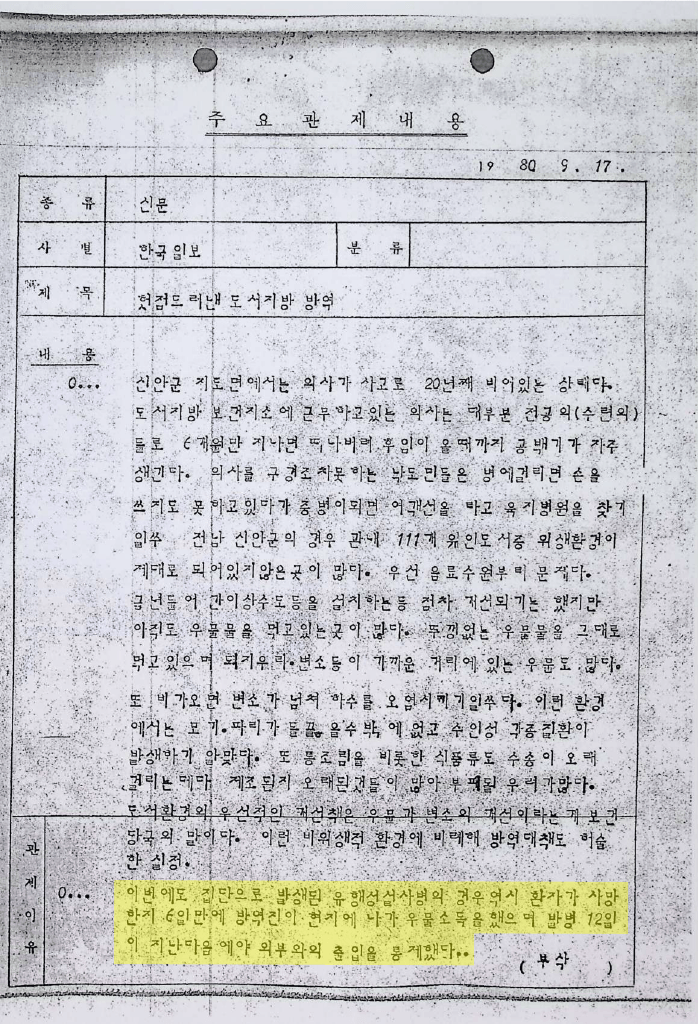 주 요 관 제 내 용
19 80 9. 17.
종 류 신문
사 별 한국일보 분 류
제 목 헛점드러낸 도서지방 방역
내 용
0... 신안군 지도면에서는 의사가 사고로 20년째 비어있는 상태다.
도서지방 보건지소에 근무하고있는 의사는 대부분 전공의(수련의)
들로 6개월만 지나면 떠나버려 후임이 올때까지 공백기가 자주
생긴다. 의사를 구경조차못하는 낙도민들은 병에걸리면 손을
쓰지도 못하고있다가 중병이되면 여객선을 타고 육지병원을 찾기
일쑤 전남 신안군의 경우 관내 111개 유인도서중 위생환경이
제대로 되어있지않은곳이 많다. 우선 음료수원부터 문제다.
금년들어 간이상수도등을 설치하는등 점차 개선되기는 했지만
아직도 우물물을 먹고있는곳이 많다. 뚜껑없는 우물물을 그대로
먹고있으며 돼지우리.변소등이 가까운 거리에 있는 우물도 많다.
또 비가오면 변소가 넘쳐 하수를 오염시키기일쑤다. 이런 환경
에서는 모기.파리가 들끓을수밖에없고 수인성 각종질환이
발생하기 알맞다. 또 통조림을 비롯한 식품류도 수송이 오래
걸리는데다 제조된지 오래된것들이 많아 부패될 우려가많다.
도서환경의 우선적인 개선책은 우물과 변소의 개선이라는게 보건
당국의 말이다. 이런 비위생적 환경에 비례해 방역대책도 허술
한 실정.
관 제 이 유
0... 이번에도 집단으로 발생된 유행성설사병의 경우역시 환자가 사망
한지 6일만에 방역진이 현지에 나가 우물소독을했으며 발병 12일
이 지난다음에야 외부와의 출입을 통제했다..
( 부산 )